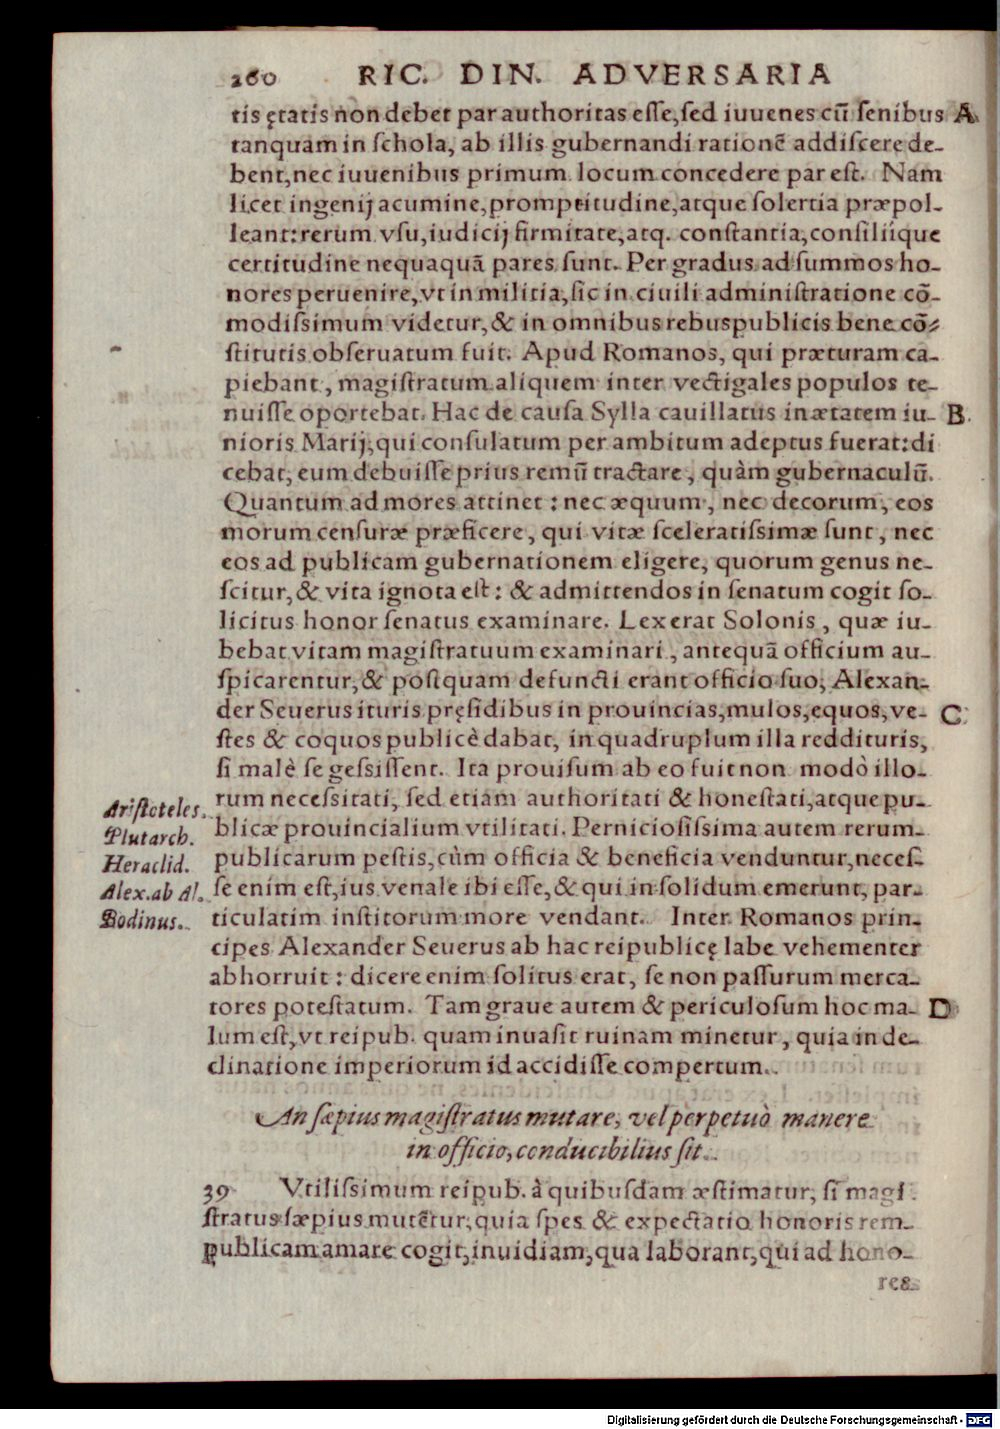 260 RIC. DIN. ADVERSARIA
tis ętatis non debet par authoritas esse, sed iuuenes cũ senibus A
tanquam in schola, ab illis gubernandi rationẽ addiscere de-
bent, nec iuuenibus primum locum concedere par est. Nam
licet ingenij acumine, promptitudine, atque solertia præpol-
leant: rerum vsu, iudicij firmitate, atq. constantia, consiliíque
certitudine nequaquã pares sunt. Per gradus ad summos ho-
nores peruenire, vt in militia, sic in ciuili administratione cõ-
modissimum videtur, & in omnibus rebuspublicis bene cõ-
stitutis obseruatum fuit. Apud Romanos, qui præturam ca-
piebant, magistratum aliquem inter vectigales populos te-
nuisse oportebat. Hac de causa Sylla cauillatus in ætatem iu- B
nioris Marij, qui consulatum per ambitum adeptus fuerat: di
cebat, eum debuisse prius remũ tractare, quàm gubernaculũ.
Quantum ad mores attinet: nec æquum, nec decorum, eos
morum censuræ præficere, qui vitæ sceleratissimæ sunt, nec
eos ad publicam gubernationem eligere, quorum genus ne-
scitur, & vita ignota est: & admittendos in senatum cogit so-
licitus honor senatus examinare. Lex erat Solonis, quæ iu-
bebat vitam magistratuum examinari, antequã officium au-
spicarentur, & postquam defuncti erant officio suo, Alexan-
der Seuerus ituris pręsidibus in prouincias, mulos, equos, ve- C
stes & coquos publicè dabat, in quadruplum illa reddituris,
si malè se gessissent. Ita prouisum ab eo fuit non modò illo-
rum necessitati, sed etiam authoritati & honestati, atque pu-
blicæ prouincialium vtilitati. Perniciosissima autem rerum-
publicarum pestis, cùm officia & beneficia venduntur, neces-
se enim est, ius venale ibi esse, & qui in solidum emerunt, par-
ticulatim institorum more vendant. Inter Romanos prin-
cipes Alexander Seuerus ab hac reipublicę labe vehementer
abhorruit: dicere enim solitus erat, se non passurum merca-
tores potestatum. Tam graue autem & periculosum hoc ma- D
lum est, vt reipub. quam inuasit ruinam minetur, quia in de-
clinatione imperiorum id accidisse compertum.
Aristoteles.
Plutarch.
Heraclid.
Alex. ab Al.
Bodinus.
An sæpius magistratus mutare, vel perpetuò manere
in officio, conducibilius sit.
39 Vtilissimum reipub. à quibusdam æstimatur, si magi
stratus sæpius mutẽtur, quia spes & expectatio honoris rem-
publicam amare cogit, inuidiam, qua laborant, qui ad hono-
res
Digitalisierung gefördert durch die Deutsche Forschungsgemeinschaft - DFG